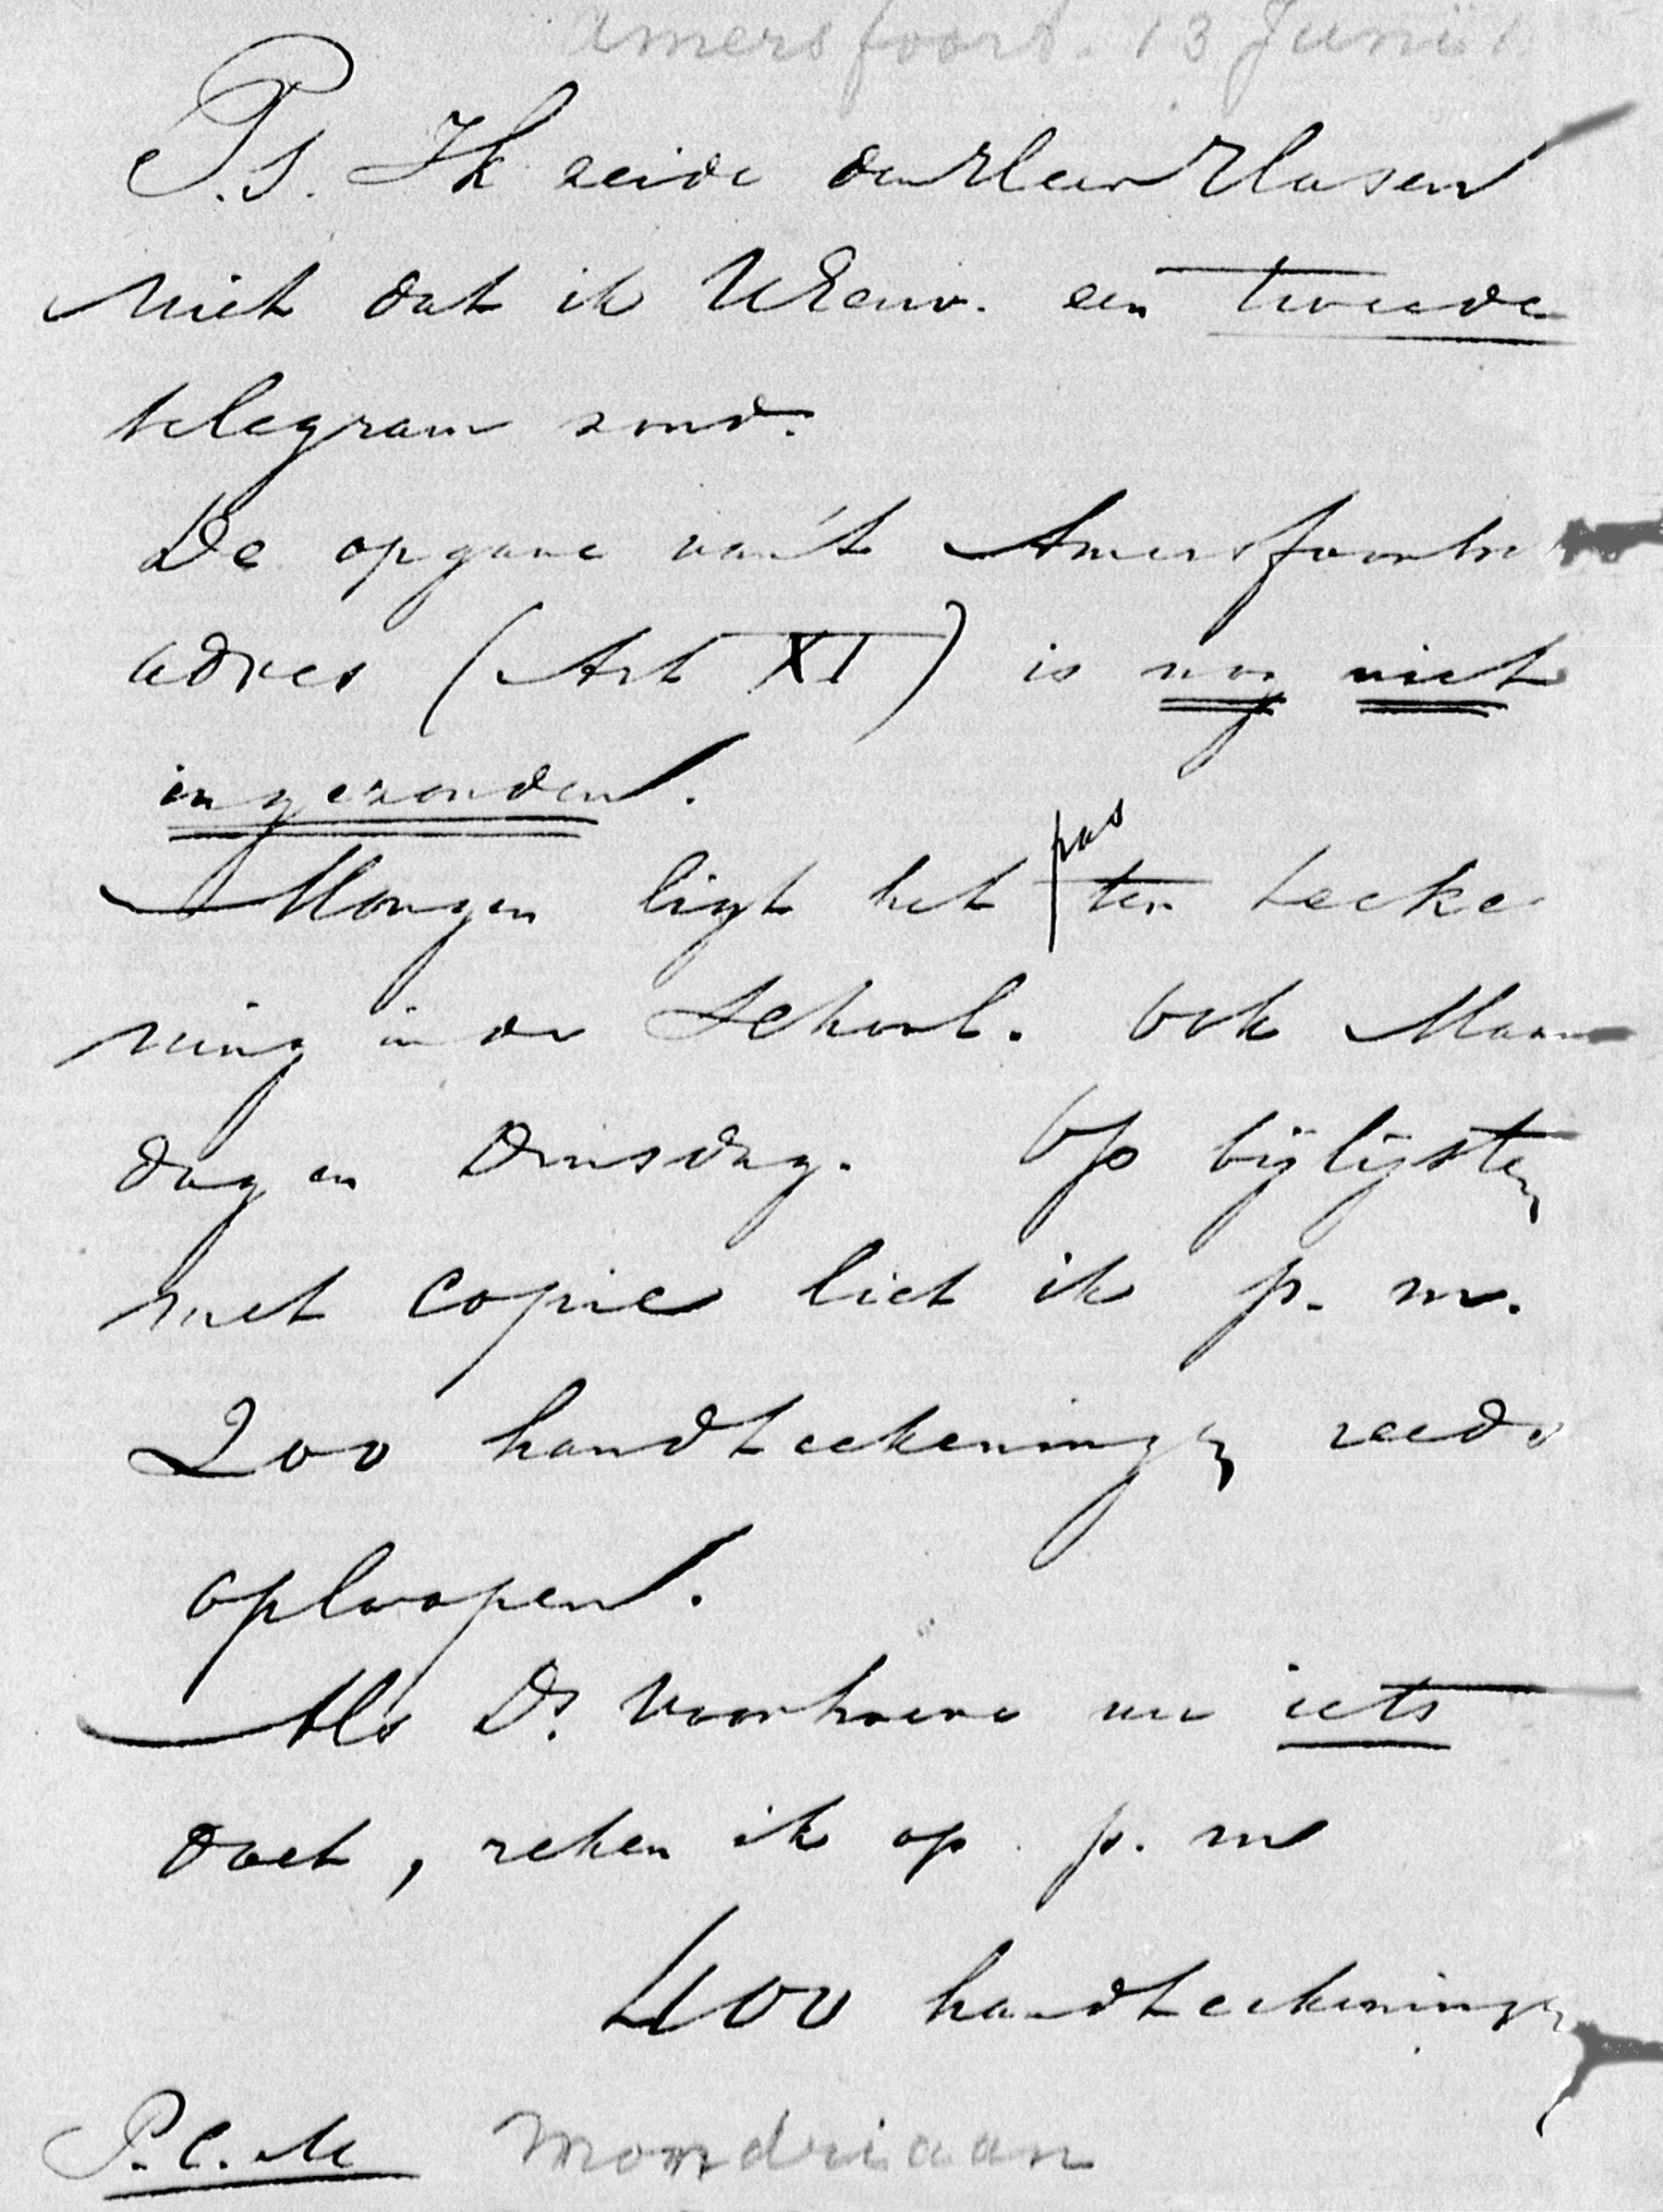 Amersfoort. 13 Junij
P.S. Ik zeide den Heer Hasen
niet dat ik UEerw. een tweede
telegram zond.
De opgave van 't Amersfoortse
adres (Art XI) is nog niet
ingezonden.
Morgen ligt het pas ter teeke
ning in de School. Ook Maan
dag en Dinsdag. Op bijlijsten
met copie liet ik p. m.
200 handteekeningen reeds
oploopen.
Als Ds. Voorhoeve nu iets
doet, reken ik op p. m
400 handteekeningen
P.C.M Mondriaan